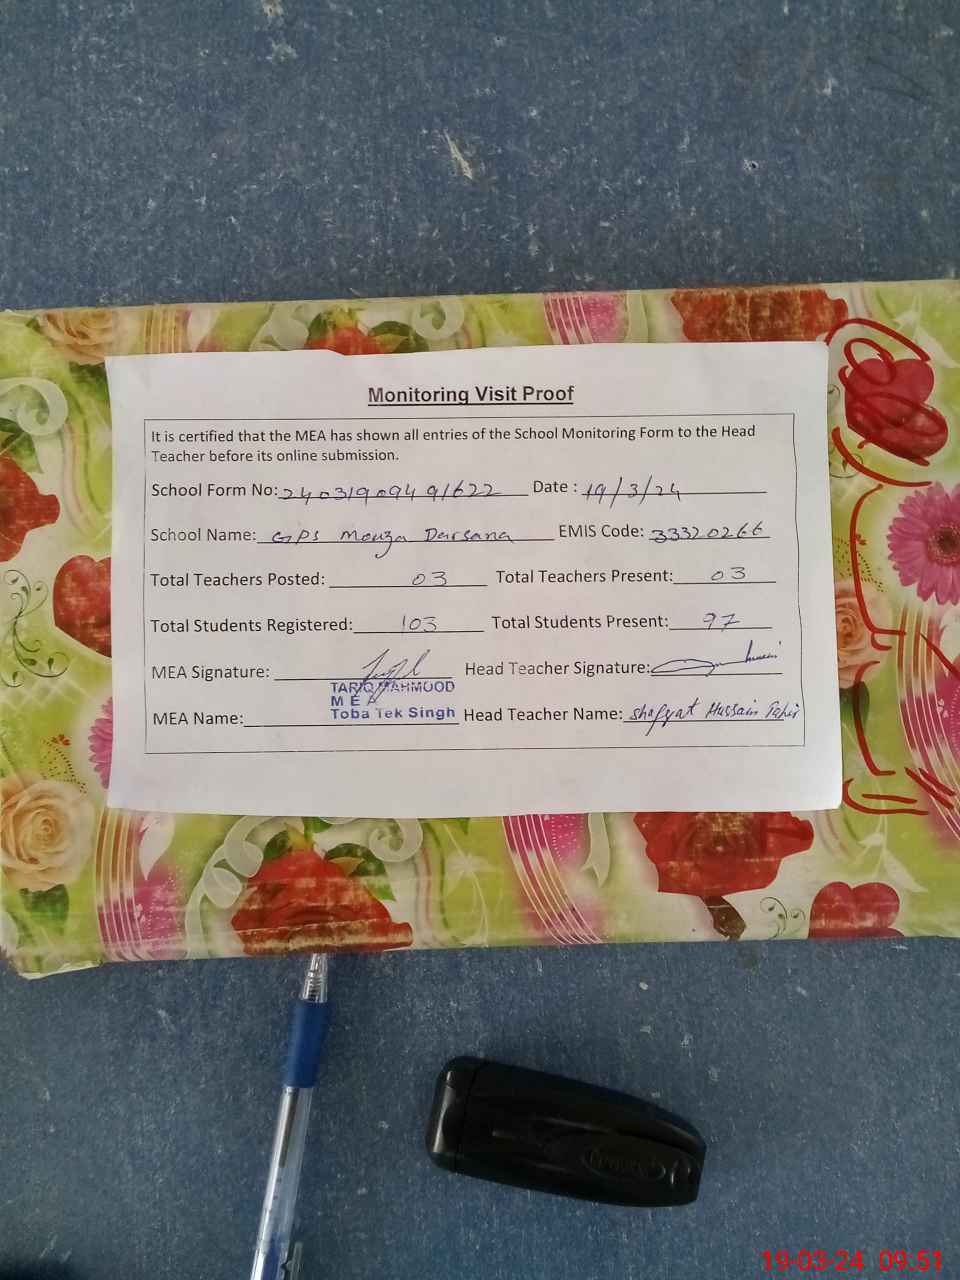 Monitoring Visit Proof
It is certified that the MEA has shown all entries of the School Monitoring Form to the Head
Teacher before its online submission.
School Form No: 2403190949 1622 Date : 19/3/24
School Name: GPS Mouza Darsana EMIS Code: 33320266
Total Teachers Posted: 03 Total Teachers Present: 03
Total Students Registered: 103 Total Students Present: 97
MEA Signature: Head Teacher Signature:
TARIQ MAHMOOD
M E A
MEA Name: Toba Tek Singh Head Teacher Name: Hussain
19-03-24 09:51